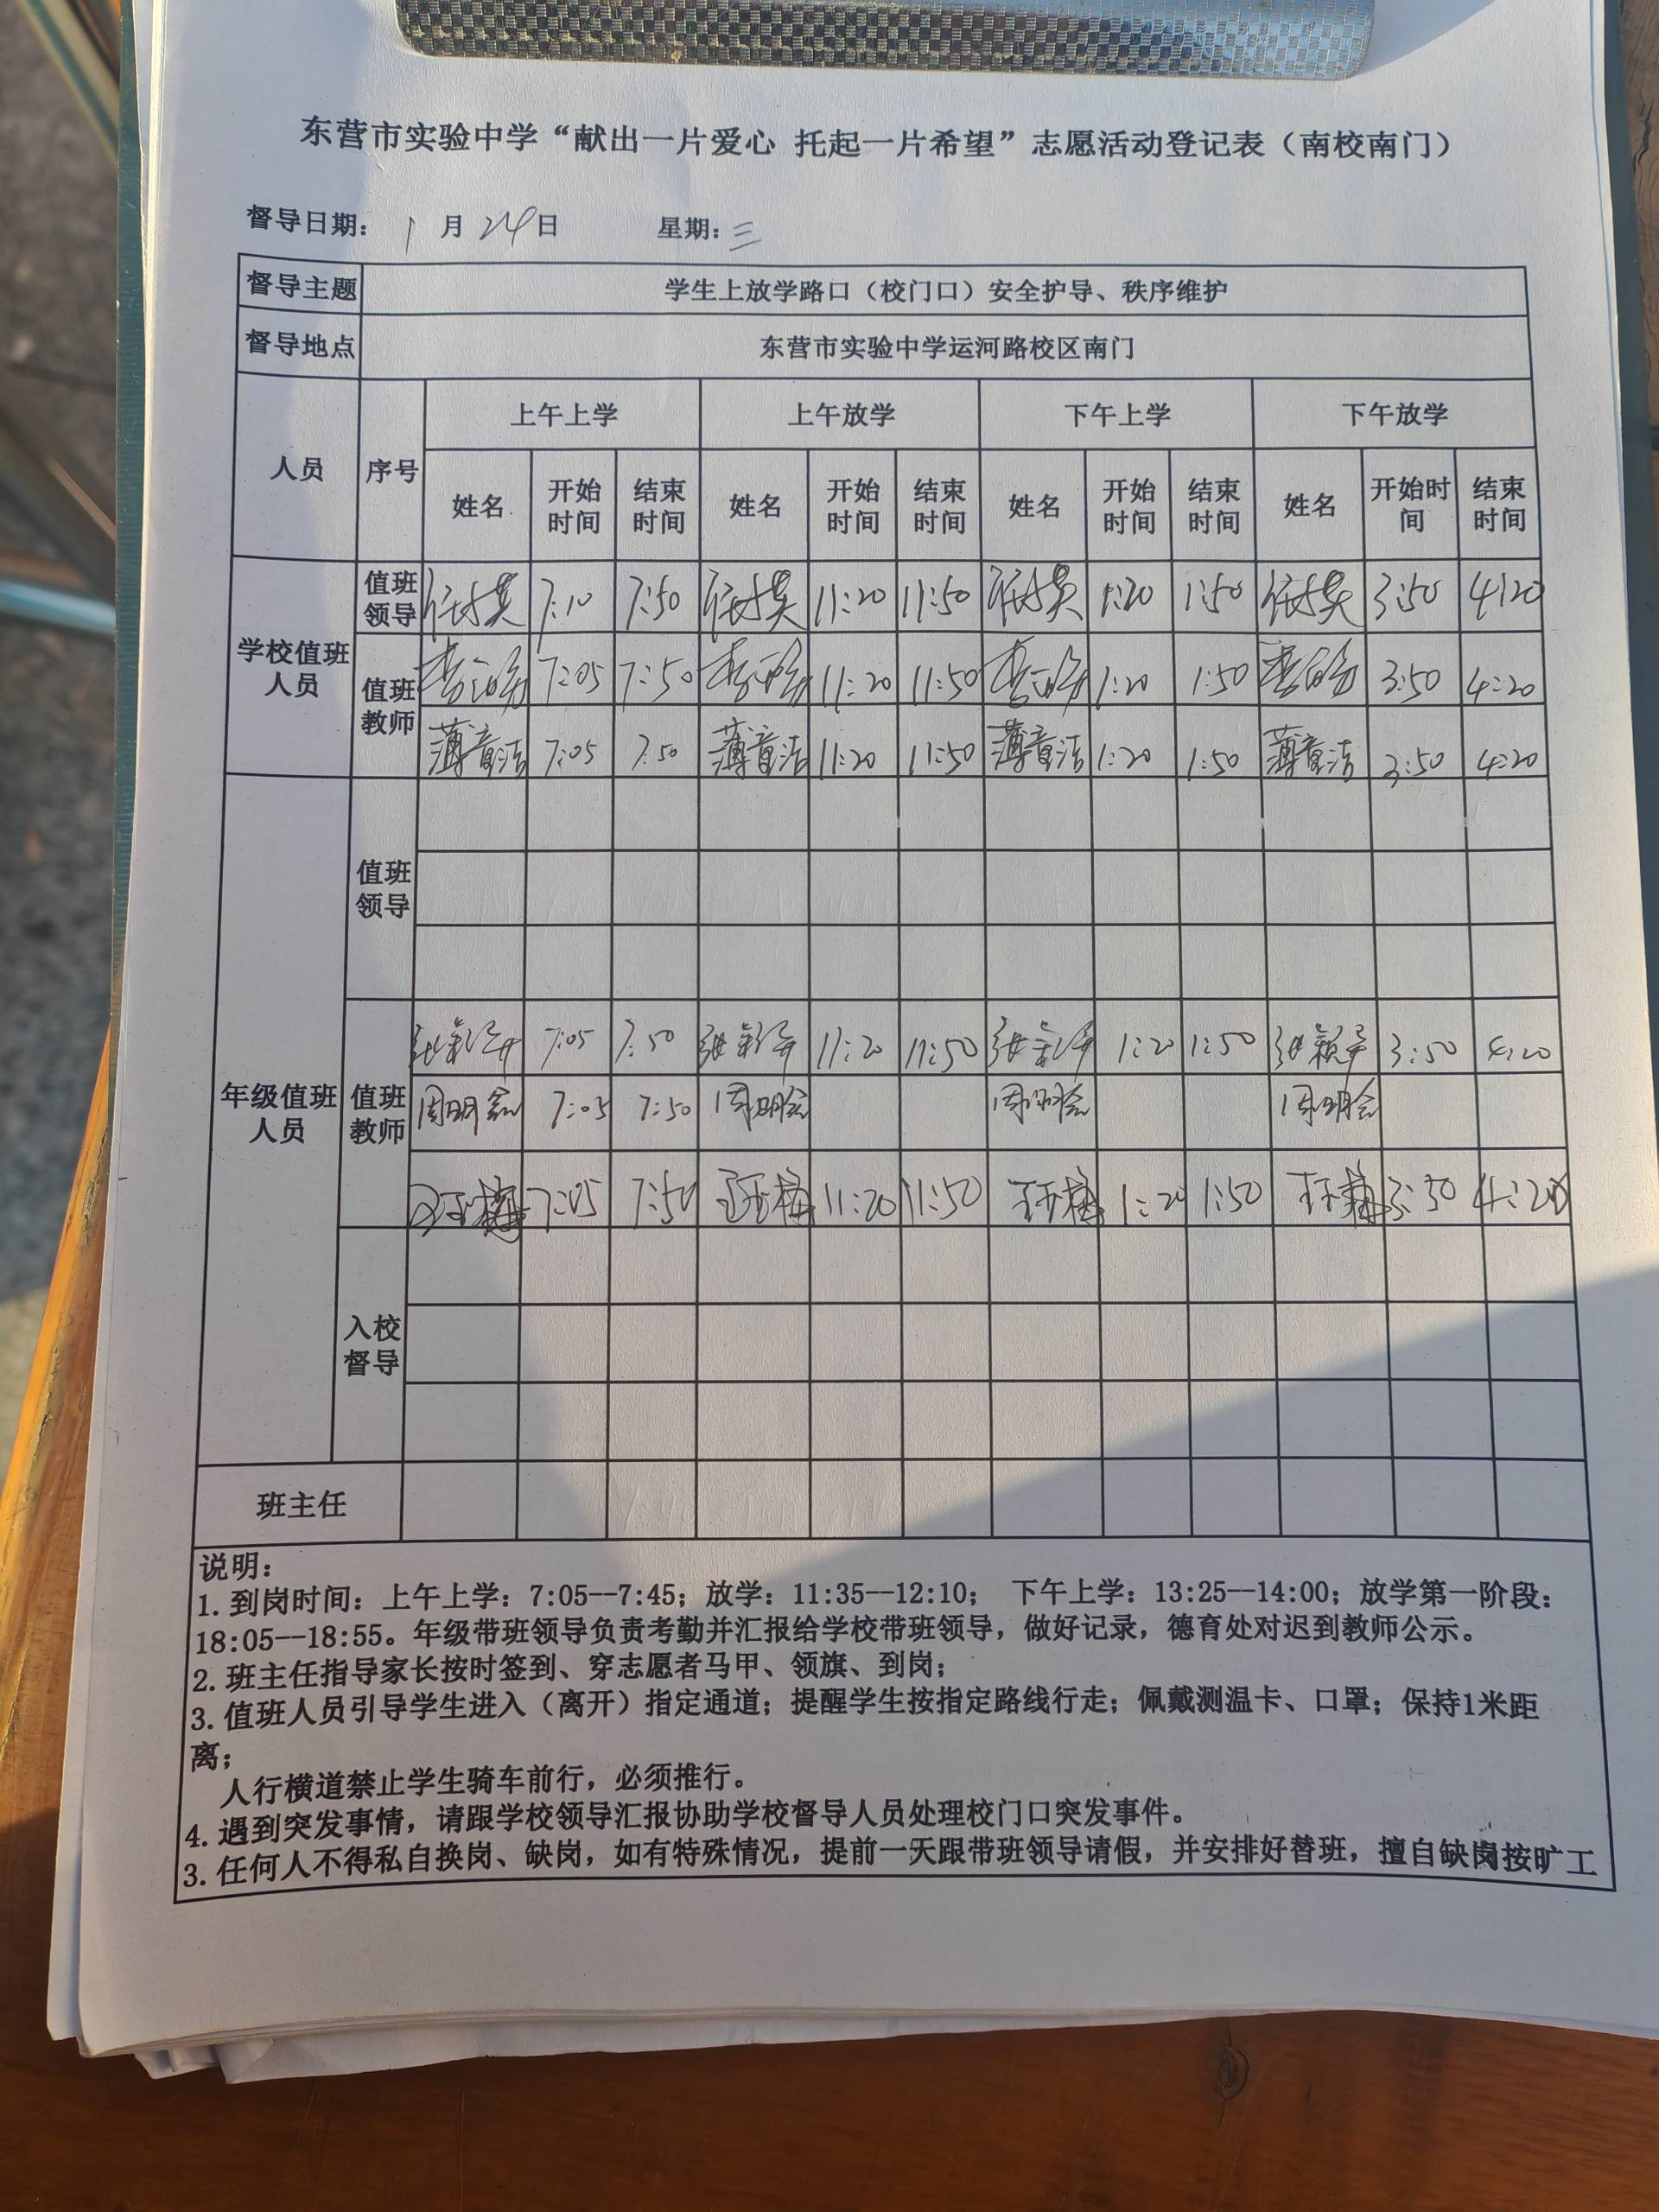 东营市实验中学“献出一片爱心 托起一片希望”志愿活动登记表（南校南门）
督导日期： 1 月 24 日 星期：三
督导主题 学生上放学路口（校门口）安全护导、秩序维护
督导地点 东营市实验中学运河路校区南门
人员 序号 上午上学 上午放学 下午上学 下午放学
姓名 开始时间 结束时间 姓名 开始时间 结束时间 姓名 开始时间 结束时间 姓名 开始时间 结束时间
学校值班人员 值班领导 7:10 7:50 11:20 11:50 1:20 1:50 3:50 4:20
值班教师 7:05 7:50 11:20 11:50 1:20 1:50 3:50 4:20
薄章洁 7:05 7:50 薄章洁 11:20 11:50 薄章洁 1:20 1:50 薄章洁 3:50 4:20
值班领导
年级值班人员 值班教师 7:05 7:50 11:20 11:50 1:20 1:50 3:50 4:20
7:05 7:50
王玉梅 7:05 7:50 王玉梅 11:20 11:50 王玉梅 1:20 1:50 王玉梅 3:50 4:20
入校督导
班主任
说明：
1. 到岗时间：上午上学：7:05--7:45；放学：11:35--12:10； 下午上学：13:25--14:00；放学第一阶段：
18:05--18:55。年级带班领导负责考勤并汇报给学校带班领导，做好记录，德育处对迟到教师公示。
2. 班主任指导家长按时签到、穿志愿者马甲、领旗、到岗；
3. 值班人员引导学生进入（离开）指定通道；提醒学生按指定路线行走；佩戴测温卡、口罩；保持1米距
离；
人行横道禁止学生骑车前行，必须推行。
4. 遇到突发事情，请跟学校领导汇报协助学校督导人员处理校门口突发事件。
3. 任何人不得私自换岗、缺岗，如有特殊情况，提前一天跟带班领导请假，并安排好替班，擅自缺岗按旷工